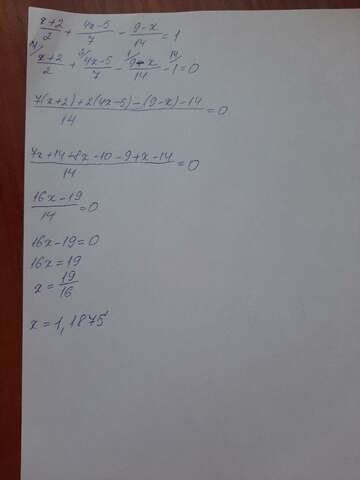 x+2/2 + 4x-5/7 - 9-x/14 = 1
7/ x+2/2 + 2/ 4x-5/7 - 1/ 9-x/14 - 14/ 1 = 0
7(x+2)+2(4x-5)-(9-x)-14/14 = 0
7x+14+8x-10-9+x-14/14 = 0
16x-19/14 = 0
16x-19=0
16x=19
x = 19/16
x = 1,1875